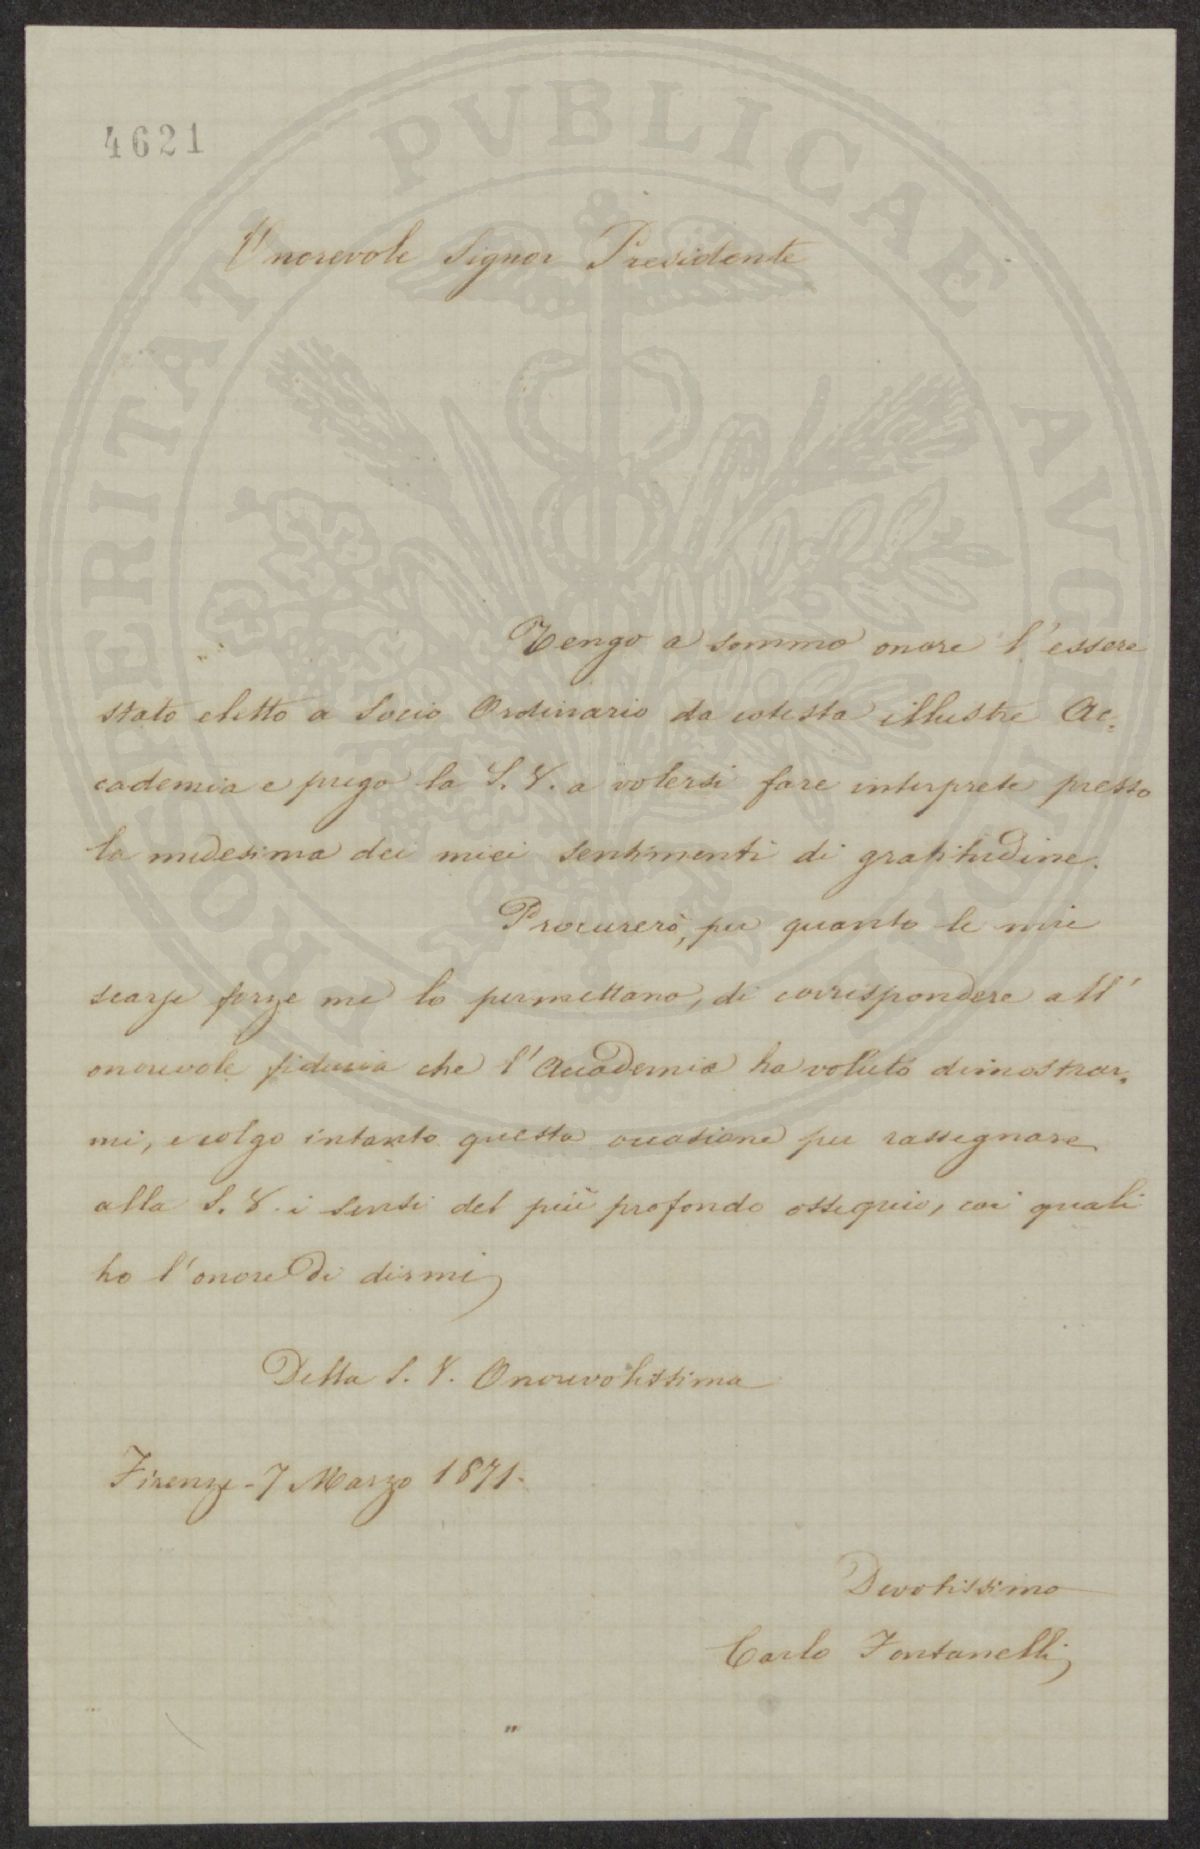 4621
PROSPERITATI PUBLICAE AVGENDAE
Onorevole Signor Presidente
Tengo a sommo onore l'essere
stato eletto a Socio Ordinario da cotesta illustre Ac=
cademia e prego la S. V. a volersi fare interprete presso
la medesima dei miei sentimenti di gratitudine.
Procurerò, per quanto le mie
scarse forze me lo permettano, di corrispondere all'
onorevole fiducia che l'Accademia ha voluto dimostrar=
mi, e colgo intanto questa occasione per rassegnare
alla S. V. i sensi del più profondo ossequio, coi quali
ho l'onore di dirmi
Della S. V. Onorevolissima
Firenze - 7 Marzo 1871.
Devotissimo
Carlo Fontanelli